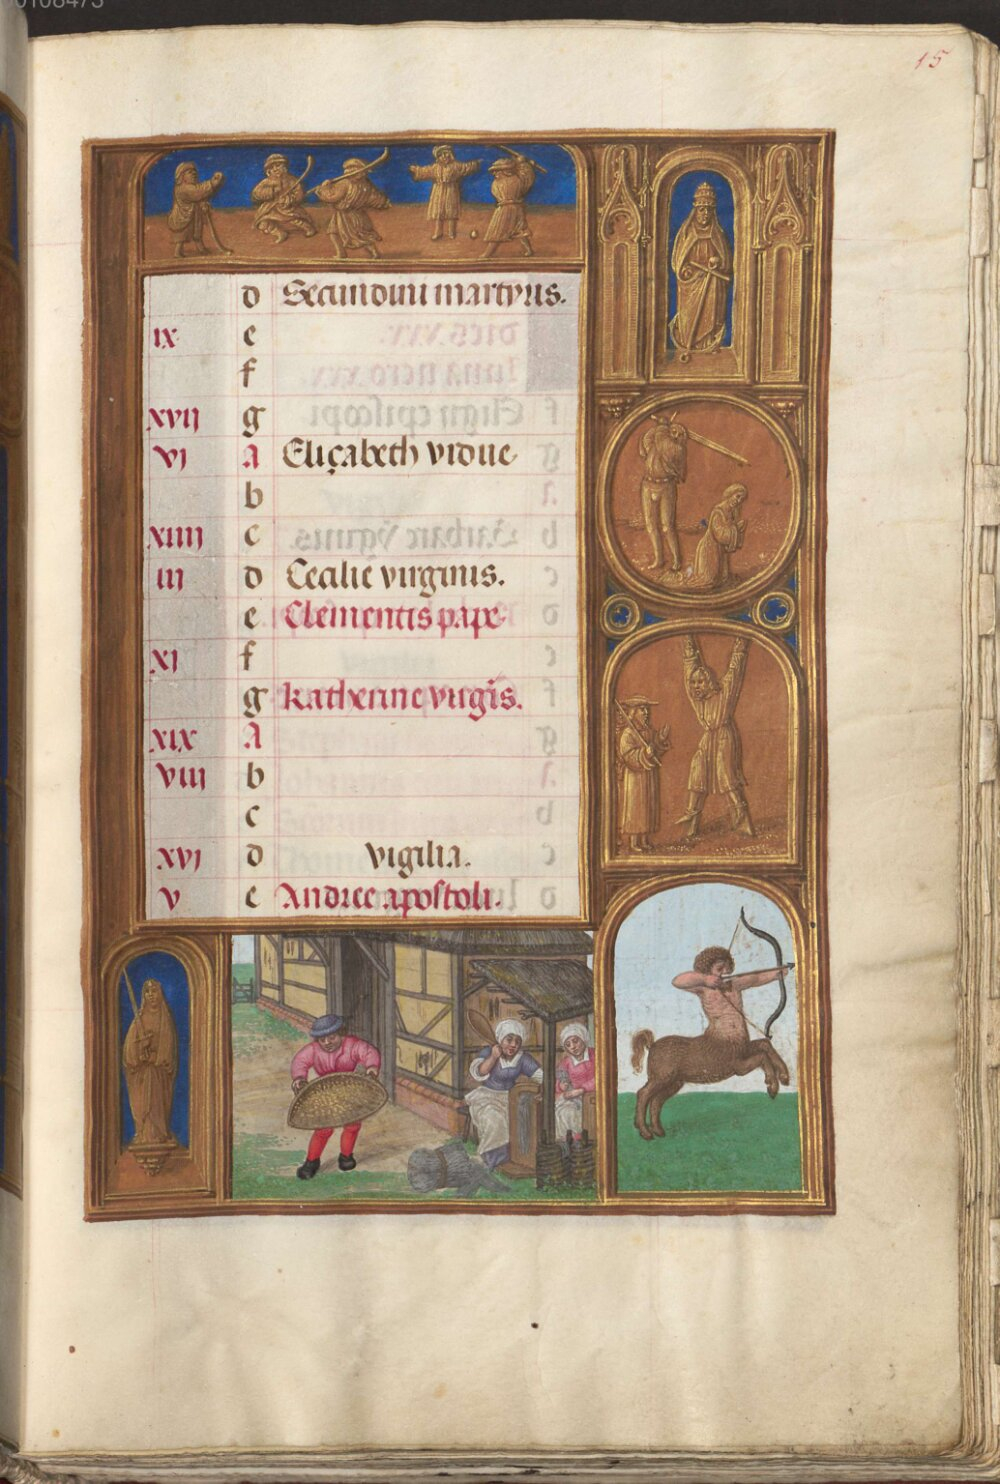 00108473
15
d Secundini martyris.
ix e
f
xvii g
vi A Eliçabeth vidue
b
xiiii c
iii d Cecilie virginis.
e Clementis pape
xi f
g Katherine virgis.
xix A
viii b
c
xvi d vigilia.
v e Andree apostoli.